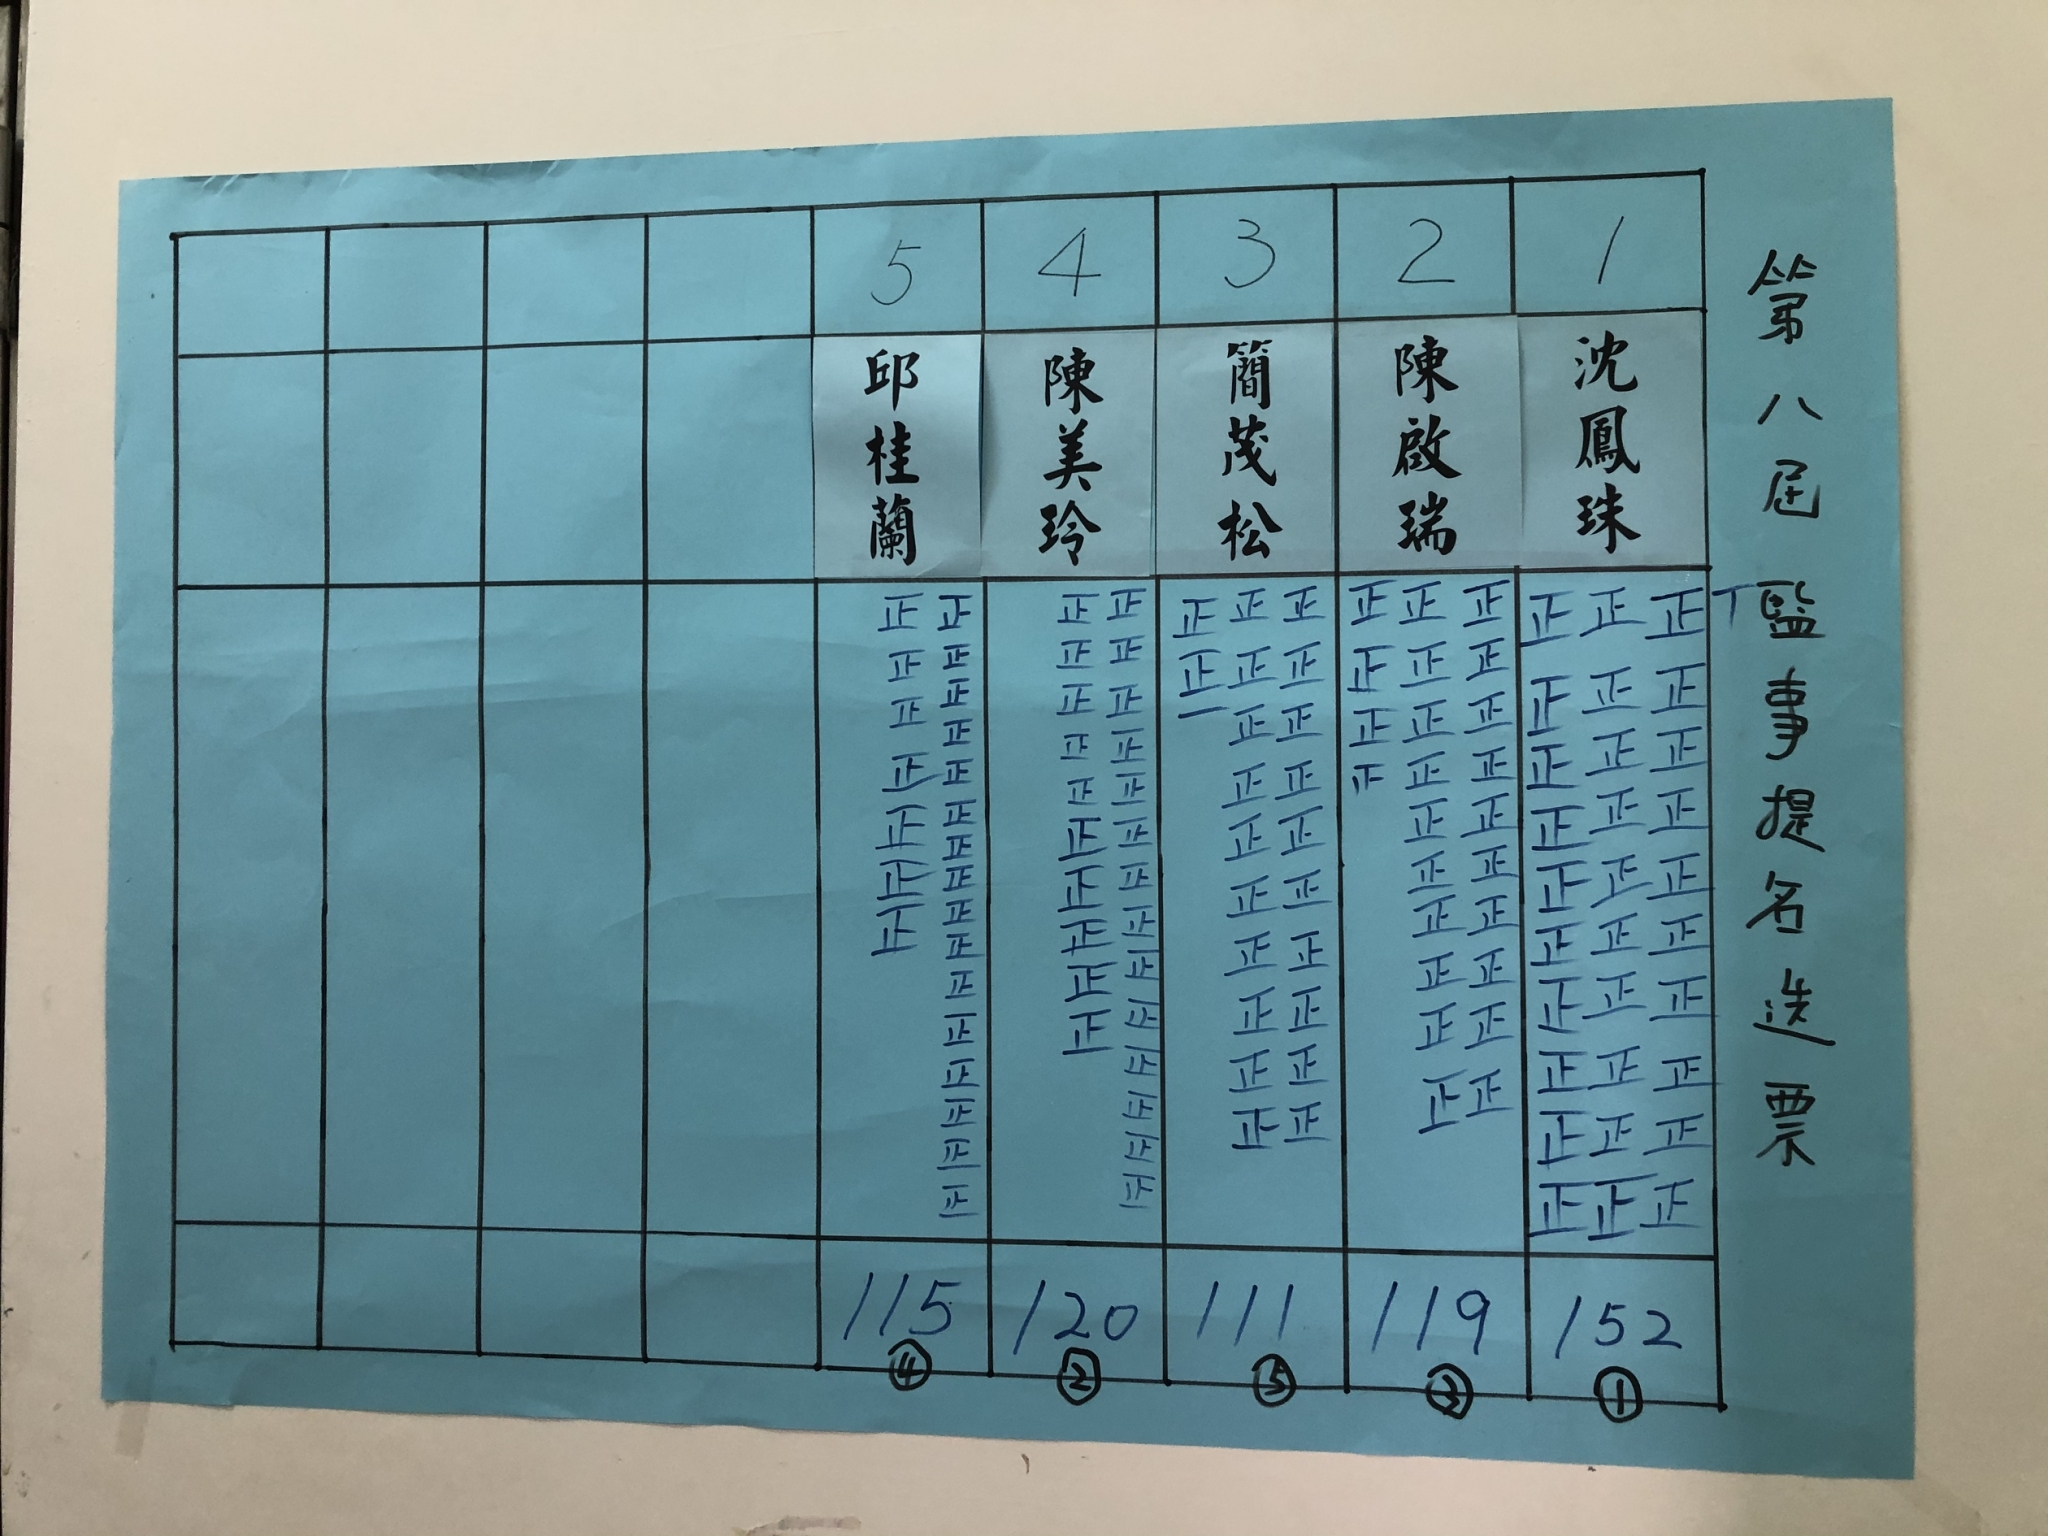 第八屆監事提名选票
1
沈鳳珠
丅
正正正正正正正正正正
正正正正正正正正正正
正正正正正正正正正正
152
①
2
陳啟瑞
正正正正正正正正正正
正正正正正正正正正正
正正正
119
③
3
簡茂松
正正正正正正正正正正
正正正正正正正正正正
正正一
111
⑤
4
陳美玲
正正正正正正正正正正正正正正
正正正正正正正正正正
120
②
5
邱桂蘭
正正正正正正正正正正正正正正正正
正正正正正正正
115
④